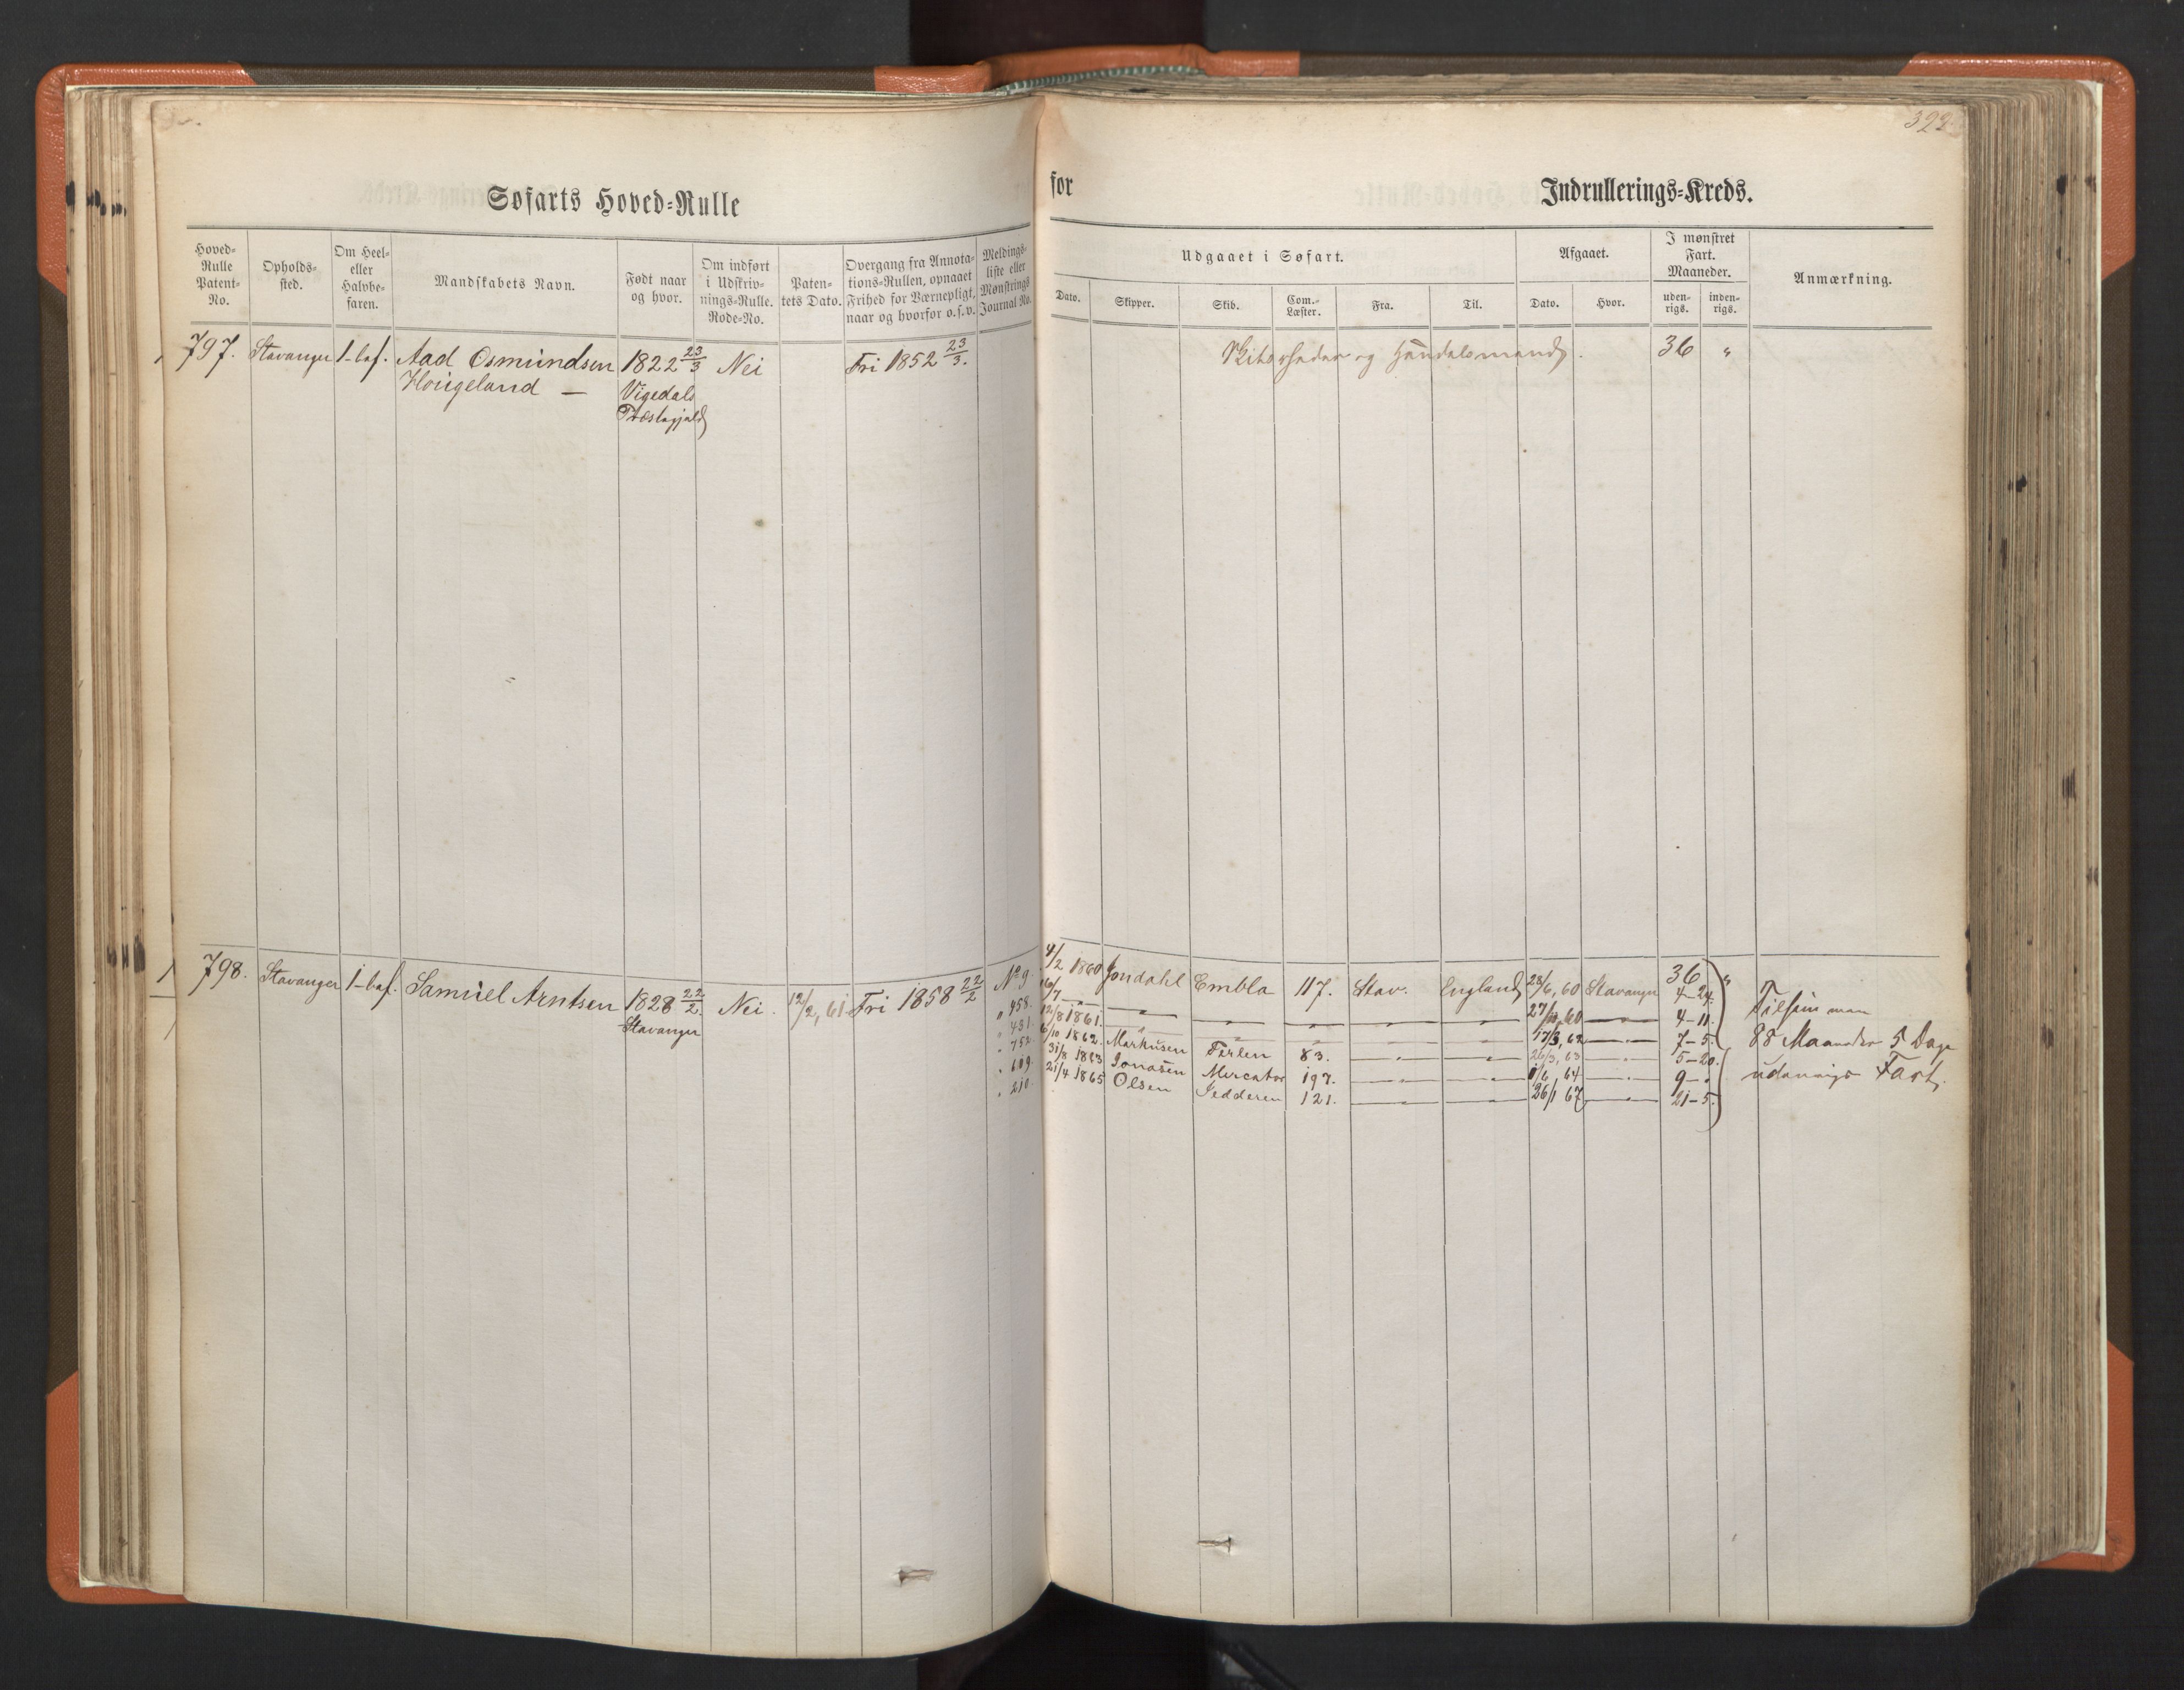 399.
Søfarts Hoved-Rulle
for
Indrullerings-Kreds.
Hoved-Rulle Patent-No.
Opholds-sted.
Om Heel- eller Halvbe-faren.
Mandskabets Navn.
Født naar og hvor.
Om indført i Udskriv-nings-Rulle. Rode-No.
Paten-tets Dato.
Overgang fra Annota-tions-Rullen, opnaaet Frihed for Værnepligt, naar og hvorfor o.s.v.
Meldings-liste eller Mønstrings Journal No.
Udgaaet i Søfart.
Dato.
Skipper.
Skib.
Com.-Læster.
Fra.
Til.
Afgaaet.
Dato.
Hvor.
I mønstret Fart. Maaneder.
uden-rigs.
inden-rigs.
Anmærkning.
797. Stavanger 1-baf. Aad Osmundsen 1822 23/3 Nei Fri 1852 23/3. og Handelsmand. 36 "
Hougeland — Vigedals
Præstegjeld
798. Stavanger 1-baf. Samuel Arntsen 1828 22/2. Nei. 12/2, 61 Fri 1858 22/2 No 9. 4/2 1860 Jondahl Embla 117. Stav. England 28/6, 60 Stavanger 36 "
4-24.
Stavanger
" 458. 16/7 — — — — — 27/11, 60 — 4-11.
" 431. 12/8 1861. " — " — — 17/3, 62 — 7-5.
" 752. 6/10 1862. Markusen Terlen 83. — — 26/3, 63 — 5-20.
" 609. 31/8 1863 Jonasen Mercator 197. — — 1/6 64 — 9-"
" 210. 21/4 1865 Olsen Jedderen 121. — — 26/1 67 — 21-5.
Tilsammen
88 Maaneder 5 Dage
udenrigs Fart.